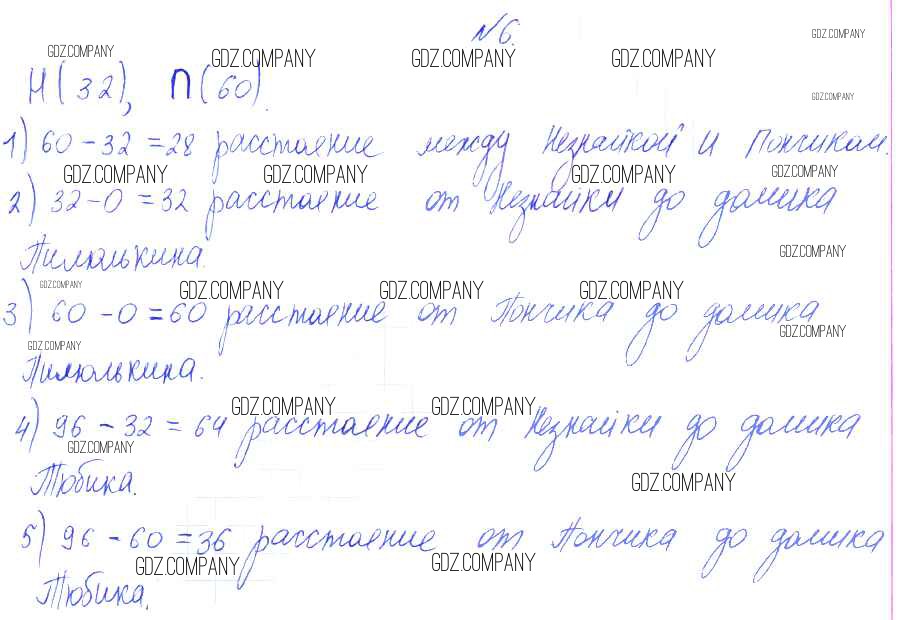 №6.
GDZ.COMPANY GDZ.COMPANY GDZ.COMPANY GDZ.COMPANY GDZ.COMPANY
Н(32), П(60).
GDZ.COMPANY
1) 60-32=28 расстояние между Незнайкой и Пончиком.
GDZ.COMPANY GDZ.COMPANY GDZ.COMPANY GDZ.COMPANY
2) 32-0=32 расстояние от Незнайки до домика
Пилюлькина.
GDZ.COMPANY
GDZ.COMPANY GDZ.COMPANY GDZ.COMPANY GDZ.COMPANY
3) 60-0=60 расстояние от Пончика до домика
GDZ.COMPANY GDZ.COMPANY
Пилюлькина.
GDZ.COMPANY GDZ.COMPANY
4) 96-32=64 расстояние от Незнайки до домика
GDZ.COMPANY
Тюбика.
GDZ.COMPANY
5) 96-60=36 расстояние от Пончика до домика
GDZ.COMPANY GDZ.COMPANY
Тюбика.